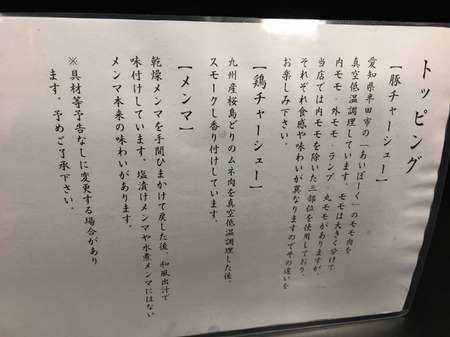 トッピング
【豚チャーシュー】
愛知県半田市の「あいぽーく」のモモ肉を
真空低温調理しています。モモは大きく分けて
内モモ・外モモ・ランプ・丸モモがありますが、
当店では内モモを除いた三部位を使用しており、
それぞれ食感や味わいが異なりますのでその違いを
お楽しみ下さい。
【鶏チャーシュー】
九州産桜島どりのムネ肉を真空低温調理した後、
スモークし香り付けしています。
【メンマ】
乾燥メンマを手間ひまかけて戻した後、和風出汁で
味付けしています。塩漬けメンマや水煮メンマにはない
メンマ本来の味わいがあります。
※具材等予告なしに変更する場合があり
ます。予めご了承下さい。